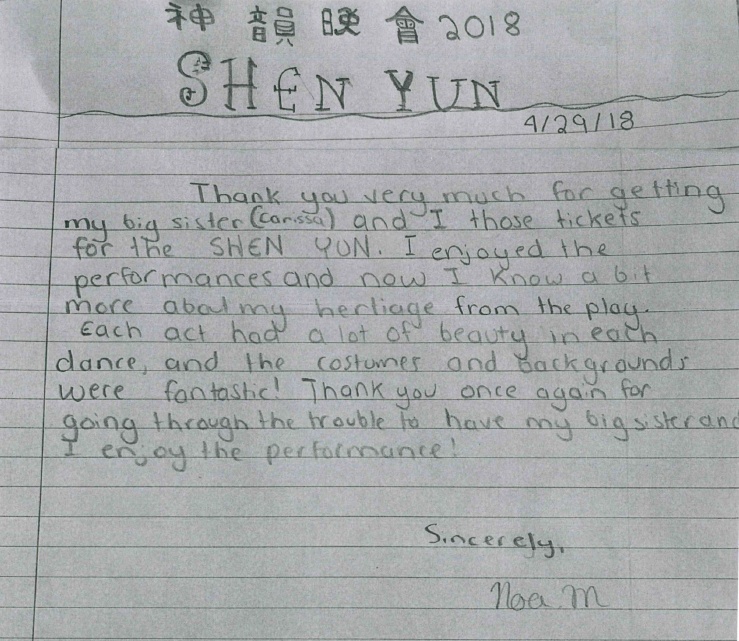 神韻晚會2018
SHEN YUN
4/29/18
Thank you very much for getting
my big sister (Carissa) and I those tickets
for the SHEN YUN. I enjoyed the
performances and now I know a bit
more about my hertiage from the play.
Each act had a lot of beauty in each
dance, and the costumes and backgrounds
were fantastic! Thank you once again for
going through the trouble to have my big sister and
I enjoy the performance!
Sincerely,
Noa M